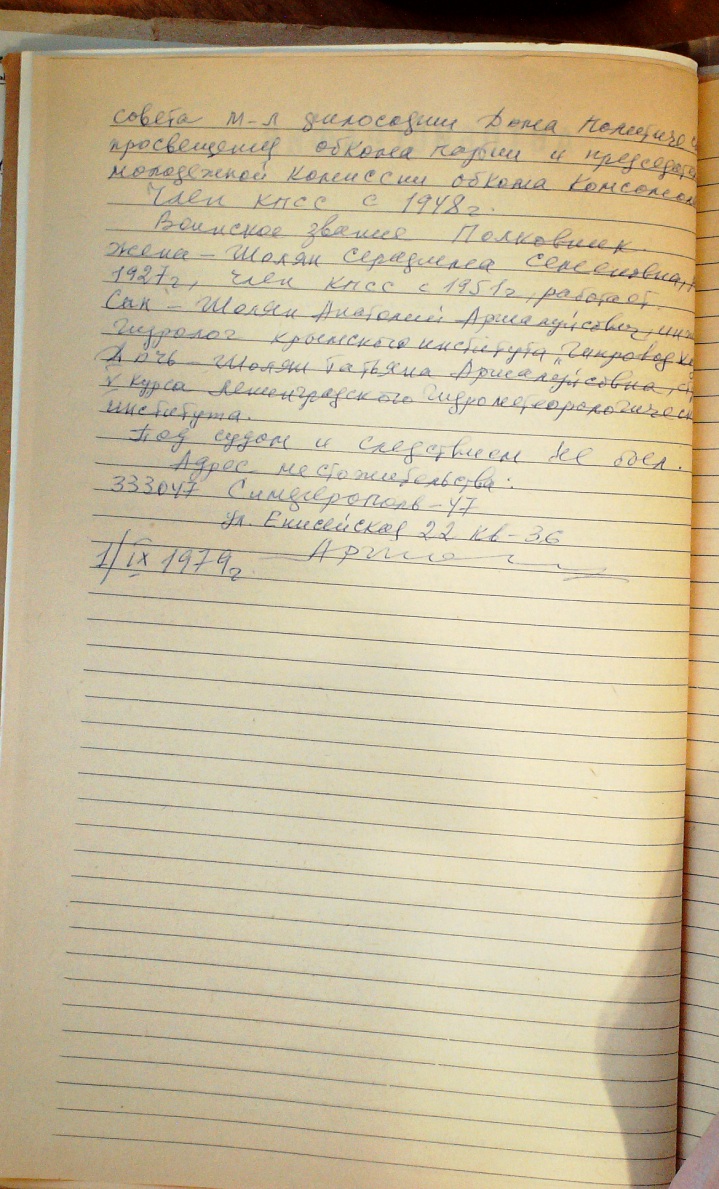 совета м-л философии Дома Политичес
просвещения обкома партии и председате
молодежной комиссии обкома Комсомол
Член КПСС с 1948г.
Воинское звание Полковник.
Жена - Шолян Семеновна,
1927г, член КПСС с 1951г, работает.
Сын - Шолян Анатолий Аршалуйсович, инж
Гидролог крымского института "Гипровод
Дочь - Шолян Татьяна Аршалуйсовна, ст
V курса Ленинградского Гидрометеорологическ
института.
Под судом и следствием не был.
Адрес местожительства:
333047 Симферополь-47
ул. Енисейская 22 кв-36
1/IX 1979г.